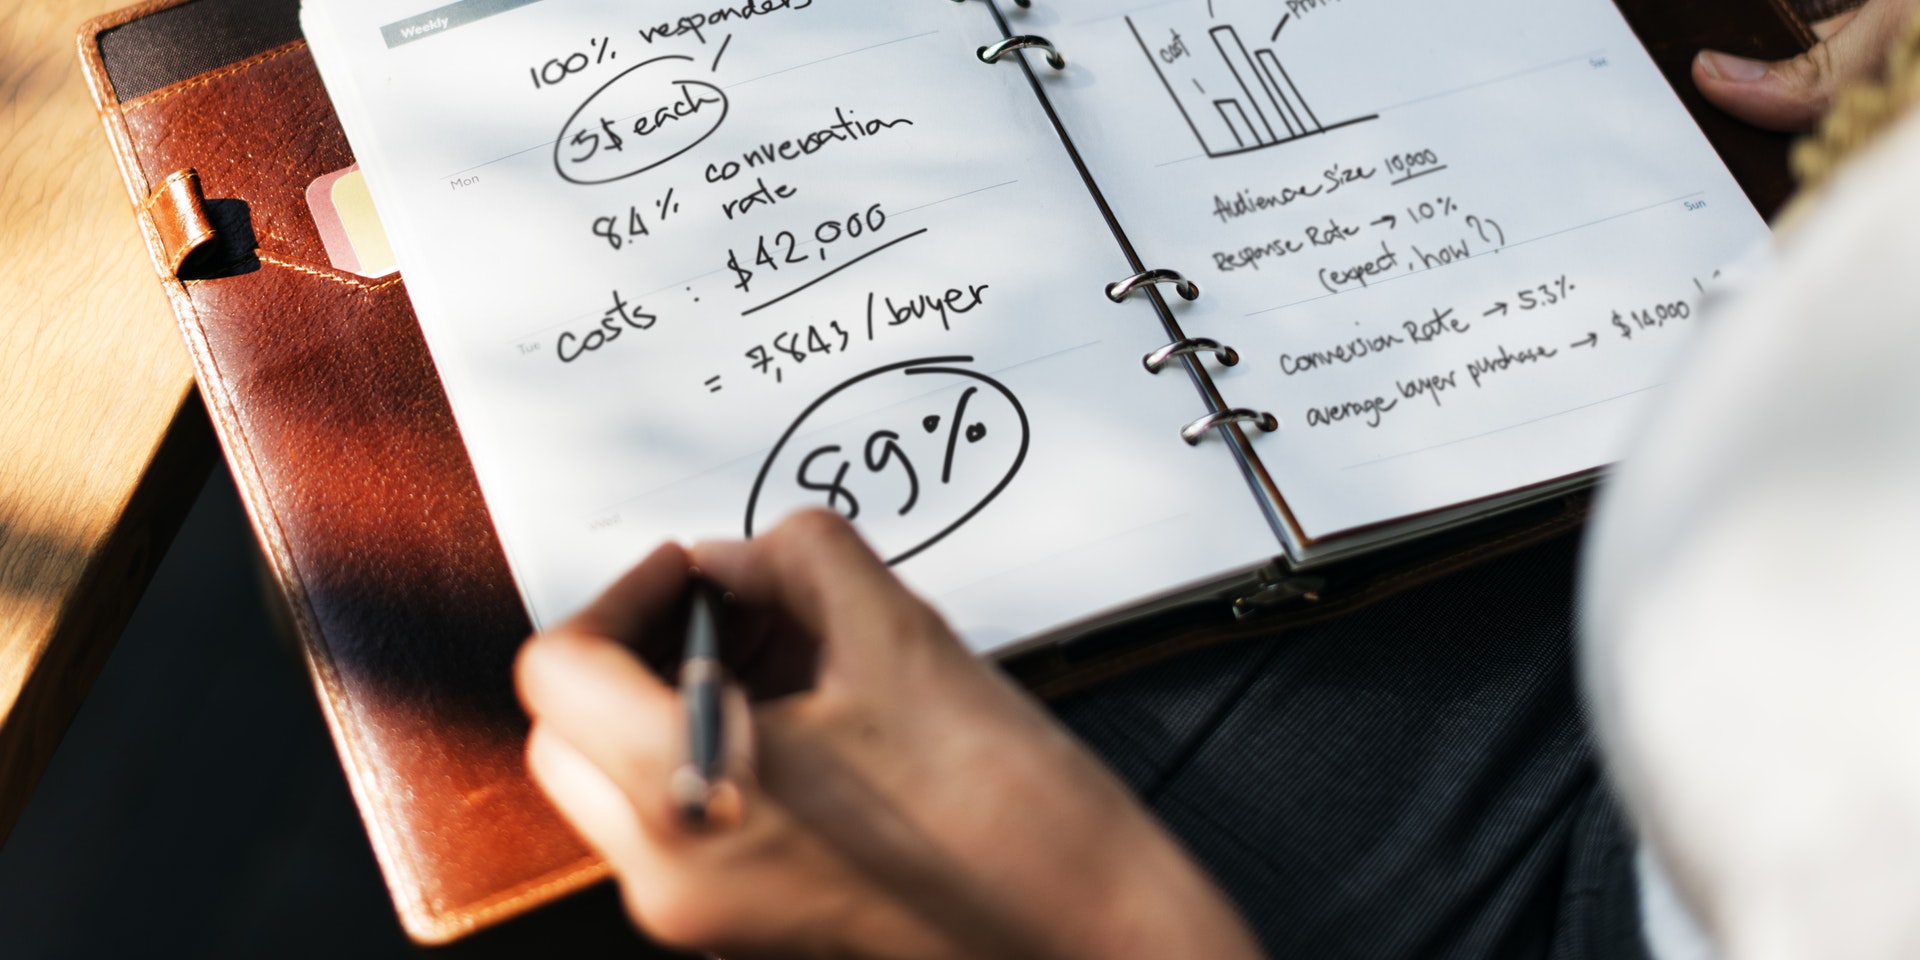 Weekly
100% responders
5$ each
Mon
8.4% conversation
rate
Tue
costs : $42,000
= 7,843 / buyer
Wed
89%
cost
Sat
Audience Size 10,000
Response Rate → 1.0%
(expect, how?)
Sun
Conversion Rate → 5.3%
average buyer purchase → $14,000